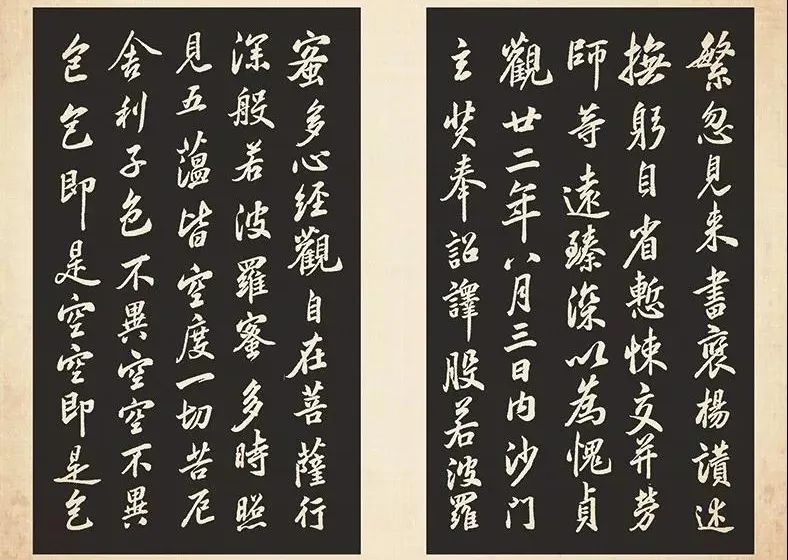 繁忽見来書褒楊讃述
撫躬自省慙悚交并勞
師等遠臻深以為愧貞
觀廿二年八月三日内沙門
玄奘奉詔譯般若波羅
蜜多心經觀自在菩薩行
深般若波羅蜜多時照
見五蘊皆空度一切苦厄
舍利子色不異空空不異
色色即是空空即是色